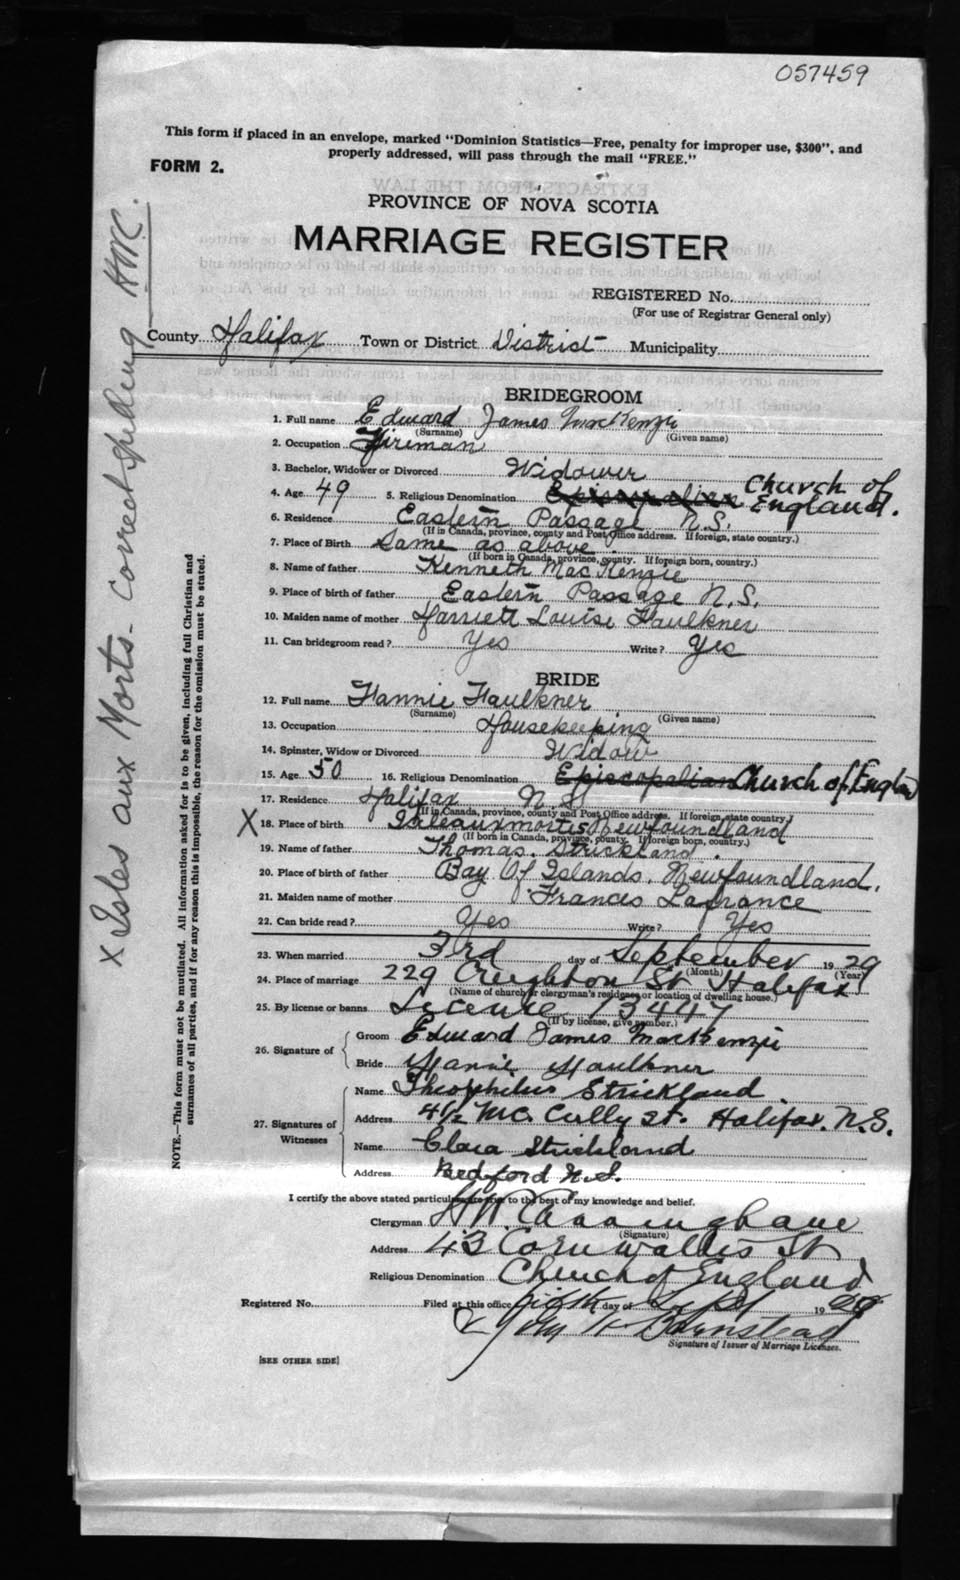 057459
This form if placed in an envelope, marked "Dominion Statistics—Free, penalty for improper use, $300", and
properly addressed, will pass through the mail "FREE."
FORM 2.
PROVINCE OF NOVA SCOTIA
MARRIAGE REGISTER
REGISTERED No.
(For use of Registrar General only)
County Halifax Town or District District Municipality
BRIDEGROOM
1. Full name Edward James MacKenzie
(Surname) (Given name)
2. Occupation Fireman
3. Bachelor, Widower or Divorced Widower
4. Age 49 5. Religious Denomination Episcopalian Church of England.
6. Residence Eastern Passage N.S.
(If in Canada, province, county and Post Office address. If foreign, state country.)
7. Place of Birth Same as above.
(If born in Canada, province, county. If foreign born, country.)
8. Name of father Kenneth MacKenzie
9. Place of birth of father Eastern Passage N.S.
10. Maiden name of mother Harriett Louise Faulkner
11. Can bridegroom read? Yes Write? Yes
BRIDE
12. Full name Fannie Faulkner
(Surname) (Given name)
13. Occupation Housekeeping
14. Spinster, Widow or Divorced Widow
15. Age 50 16. Religious Denomination Episcopalian Church of Englan
17. Residence Halifax N.S.
(If in Canada, province, county and Post Office address. If foreign, state country.)
X 18. Place of birth Isleauxmortes Newfoundland
(If born in Canada, province, county. If foreign born, country.)
19. Name of father Thomas Strickland.
20. Place of birth of father Bay Of Islands, Newfoundland.
21. Maiden name of mother Frances Lafrance
22. Can bride read? Yes Write? Yes
23. When married 3rd day of September 1929
(Month) (Year)
24. Place of marriage 229 Creighton St Halifax
(Name of church or clergyman's residence or location of dwelling house.)
25. By license or banns License 13447
(If by license, give number.)
26. Signature of
Groom Edward James MacKenzie
Bride Fannie Faulkner
27. Signatures of Witnesses
Name Theophelus Strickland
Address 4½ Mc Cully St. Halifax. N.S.
Name Clara Strickland
Address Bedford N.S.
I certify the above stated particulars are true to the best of my knowledge and belief.
Clergyman H W
(Signature)
Address 43 Cornwallis St
Religious Denomination Church of England
Registered No. Filed at this office fifth day of Sept 1929
Signature of Issuer of Marriage Licenses.
[SEE OTHER SIDE]
X Isles aux Morts - Correct Spelling HWC.
NOTE.—This form must not be mutilated. All information asked for is to be given, including full Christian and
surnames of all parties, and if for any reason this is impossible, the reason for the omission must be stated.